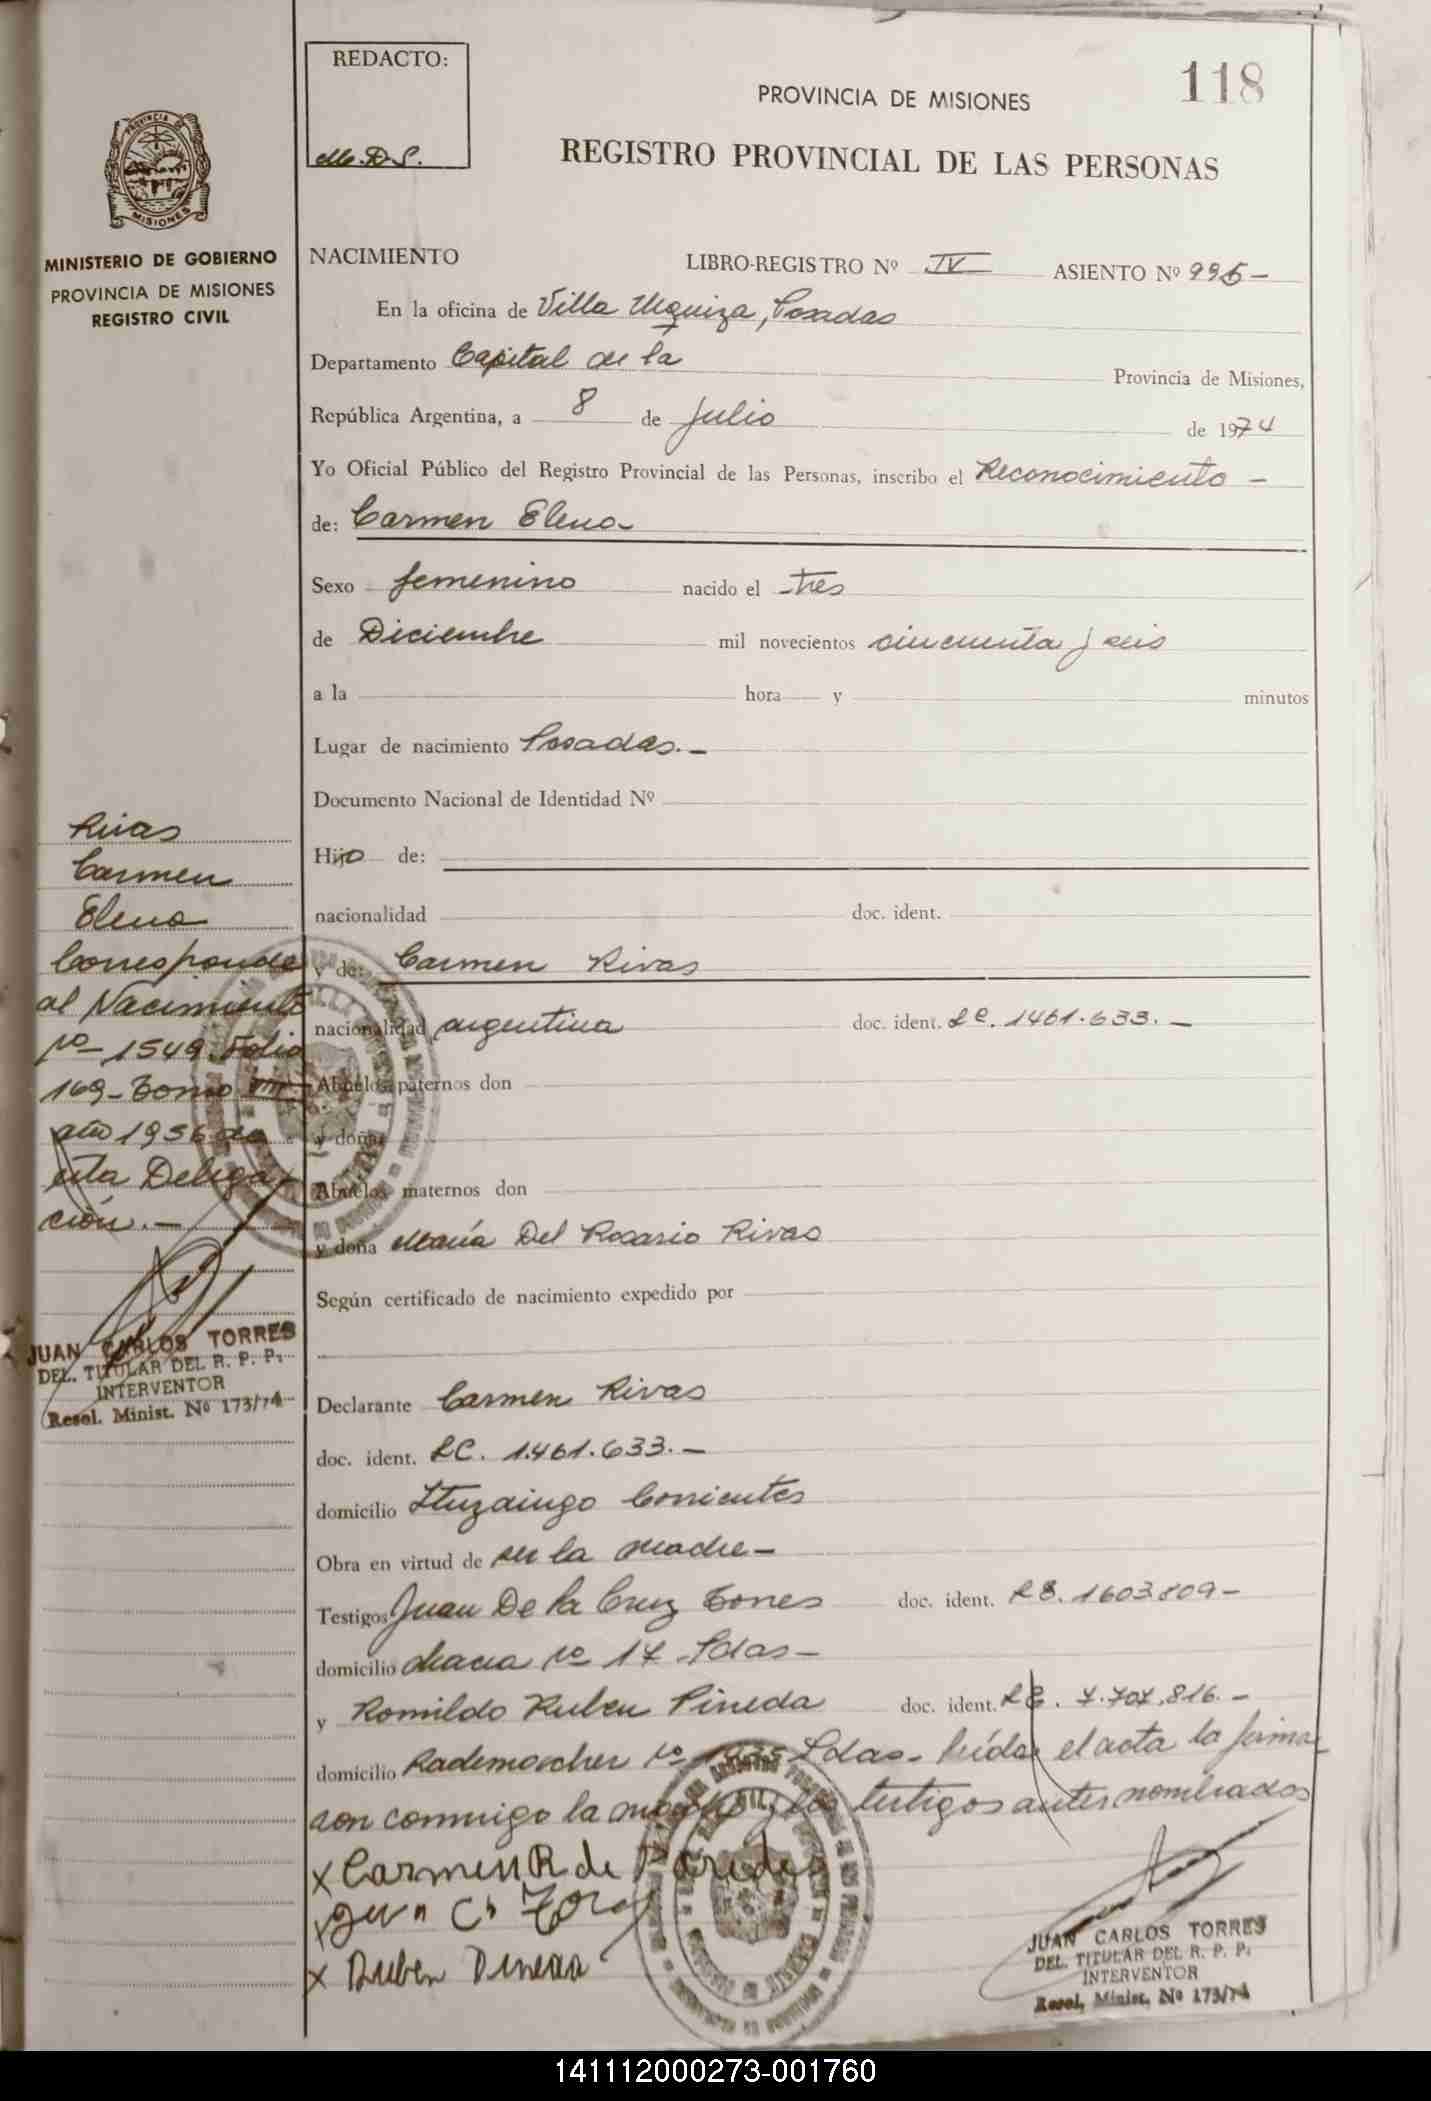 118
REDACTO:
PROVINCIA DE MISIONES
REGISTRO PROVINCIAL DE LAS PERSONAS
PROVINCIA DE
MISIONES
MINISTERIO DE GOBIERNO
PROVINCIA DE MISIONES
REGISTRO CIVIL
NACIMIENTO LIBRO-REGISTRO Nº IV ASIENTO Nº 995-
En la oficina de Villa Urquiza, Posadas
Departamento Capital de la Provincia de Misiones,
República Argentina, a 8 de Julio de 1974
Yo Oficial Público del Registro Provincial de las Personas, inscribo el Reconocimiento -
de: Carmen Elena-
Sexo femenino nacido el -tres
de Diciembre mil novecientos cincuenta y seis
a la hora y minutos
Lugar de nacimiento Posadas.-
Documento Nacional de Identidad Nº
Hijo de:
nacionalidad doc. ident.
y de: Carmen Rivas
nacionalidad argentina doc. ident. LC. 1461.633.-
Abuelos paternos don
y doña
Abuelos maternos don
y doña María Del Rosario Rivas
Según certificado de nacimiento expedido por
Declarante Carmen Rivas
doc. ident. LC. 1.461.633.-
domicilio Ituzaingo Corrientes
Obra en virtud de ser la madre-
Testigos Juan De la Cruz Torres doc. ident. LE. 1603.809-
domicilio chacra Nº 17 -Pdas-
y Romildo Ruben Pineda doc. ident. LE. 7.707.816.-
domicilio Rademarcher Nº Pdas- leída el acta la firma
son conmigo la madre y los testigos antes nombrados
x Carmen R de Paredes
x Juan Cs Tores
x Ruben Pineda
Rivas
Carmen
Elena
Corresponde
al Nacimiento
Nº- 1549. Folio
169- Tomo
año 1956 de
esta Delega
ción.-
JUAN CARLOS TORRES
DEL. TITULAR DEL R. P. P.
INTERVENTOR
Resol. Minist. Nº 173/74
JUAN CARLOS TORRES
DEL. TITULAR DEL R. P. P.
INTERVENTOR
Resol. Minist. Nº 173/74
141112000273-001760